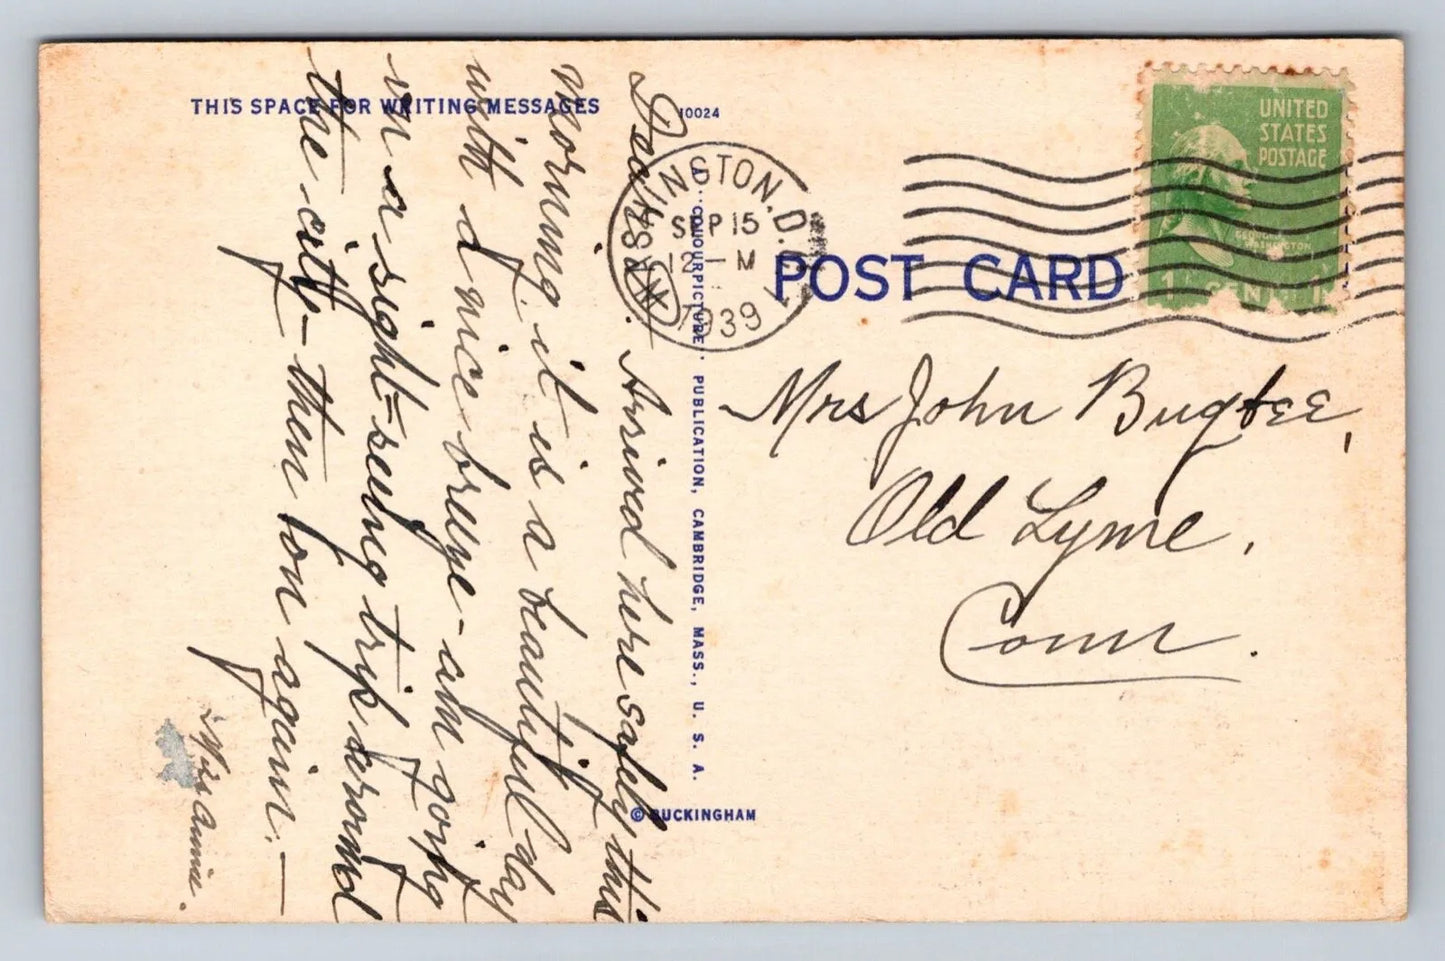 THIS SPACE FOR WRITING MESSAGES
10024
Arrived here safely this
morning, it is a beautiful day
with a nice breeze - am going
on a sight-seeing trip around
the city - then on again. -
Miss Annie.
"COLOURPICTURE" PUBLICATION, CAMBRIDGE, MASS., U. S. A.
© BUCKINGHAM
WASHINGTON, D.C.
SEP 15
12 - M
1939
POST CARD
UNITED
STATES
POSTAGE
GEORGE
WASHINGTON
1 CENT 1
Mrs John Bugbee,
Old Lyme,
Conn.